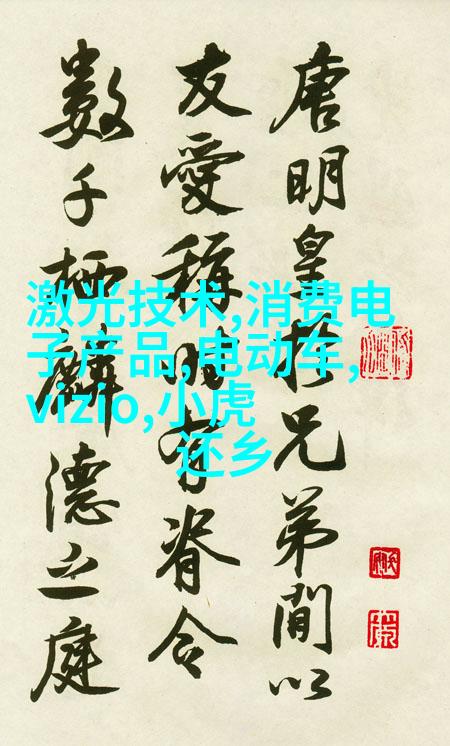 唐明皇於兄弟間以
友愛稱時有脊令
數千栖麟德之庭
激光技术,消费电
子产品,电动车,
vizio,小虎
还乡